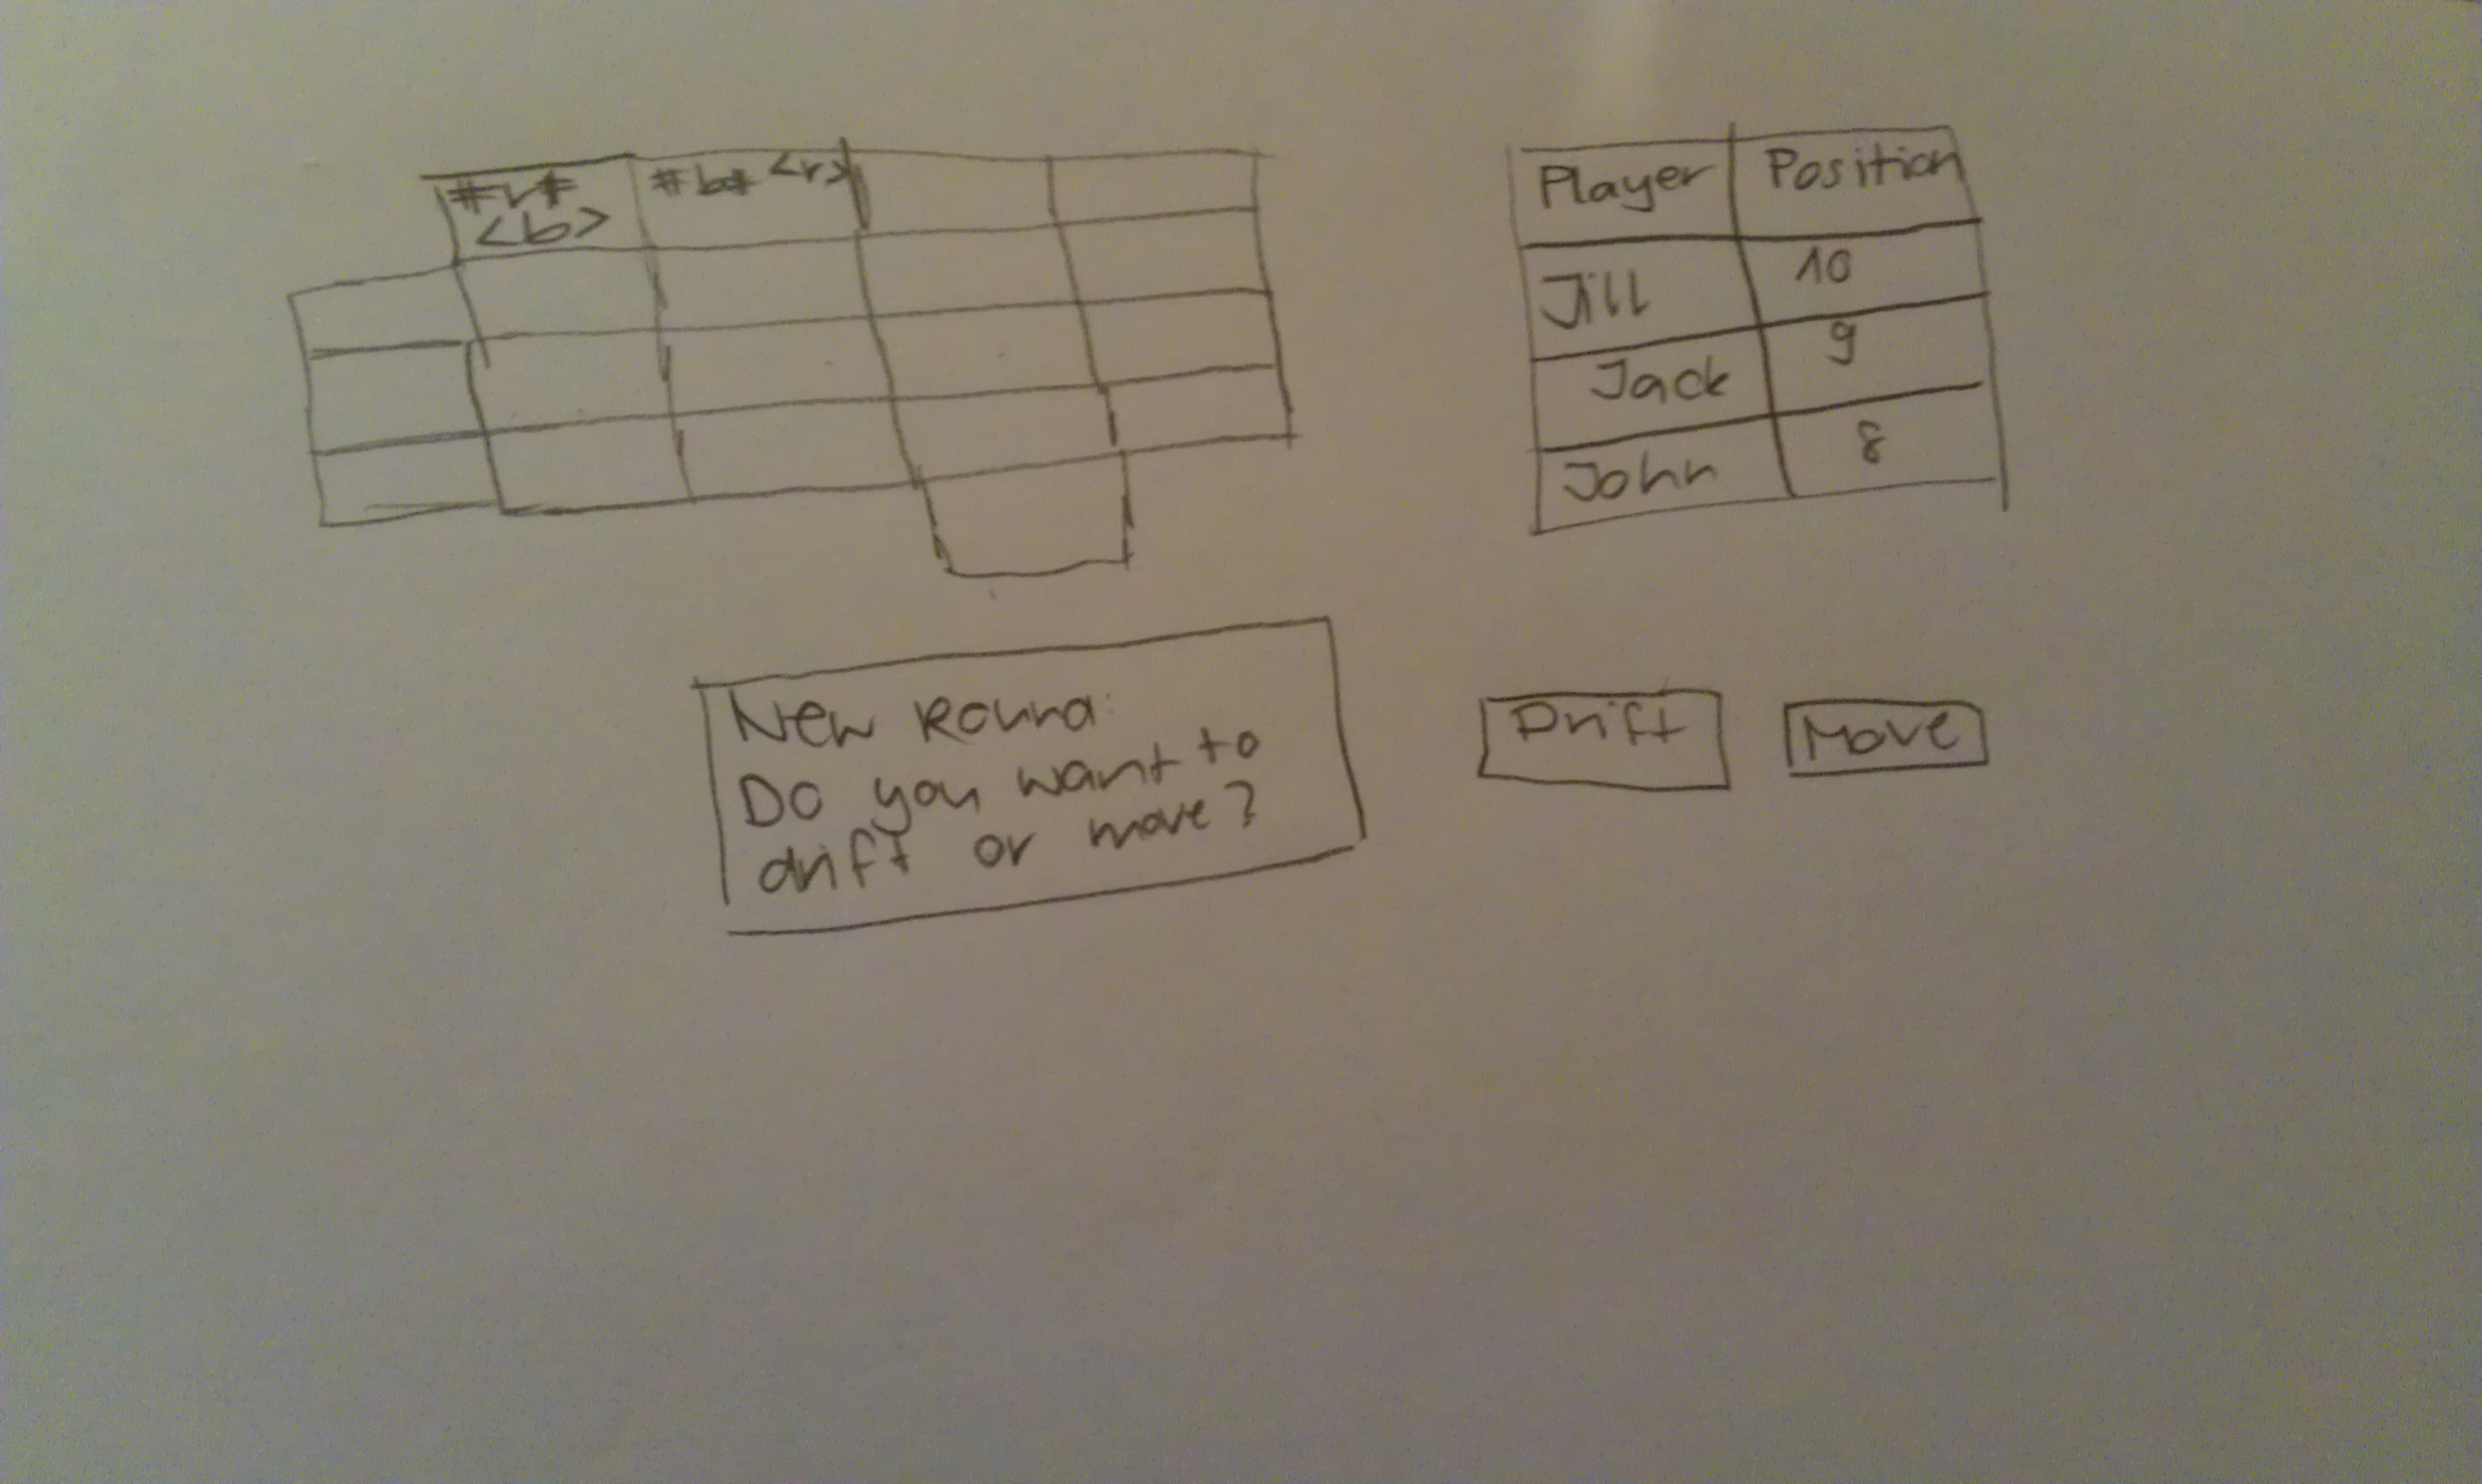 #r#
<b>
#b# <r>
Player Position
Jill 10
Jack 9
John 8
New Round:
Do you want to
drift or move?
Drift
Move